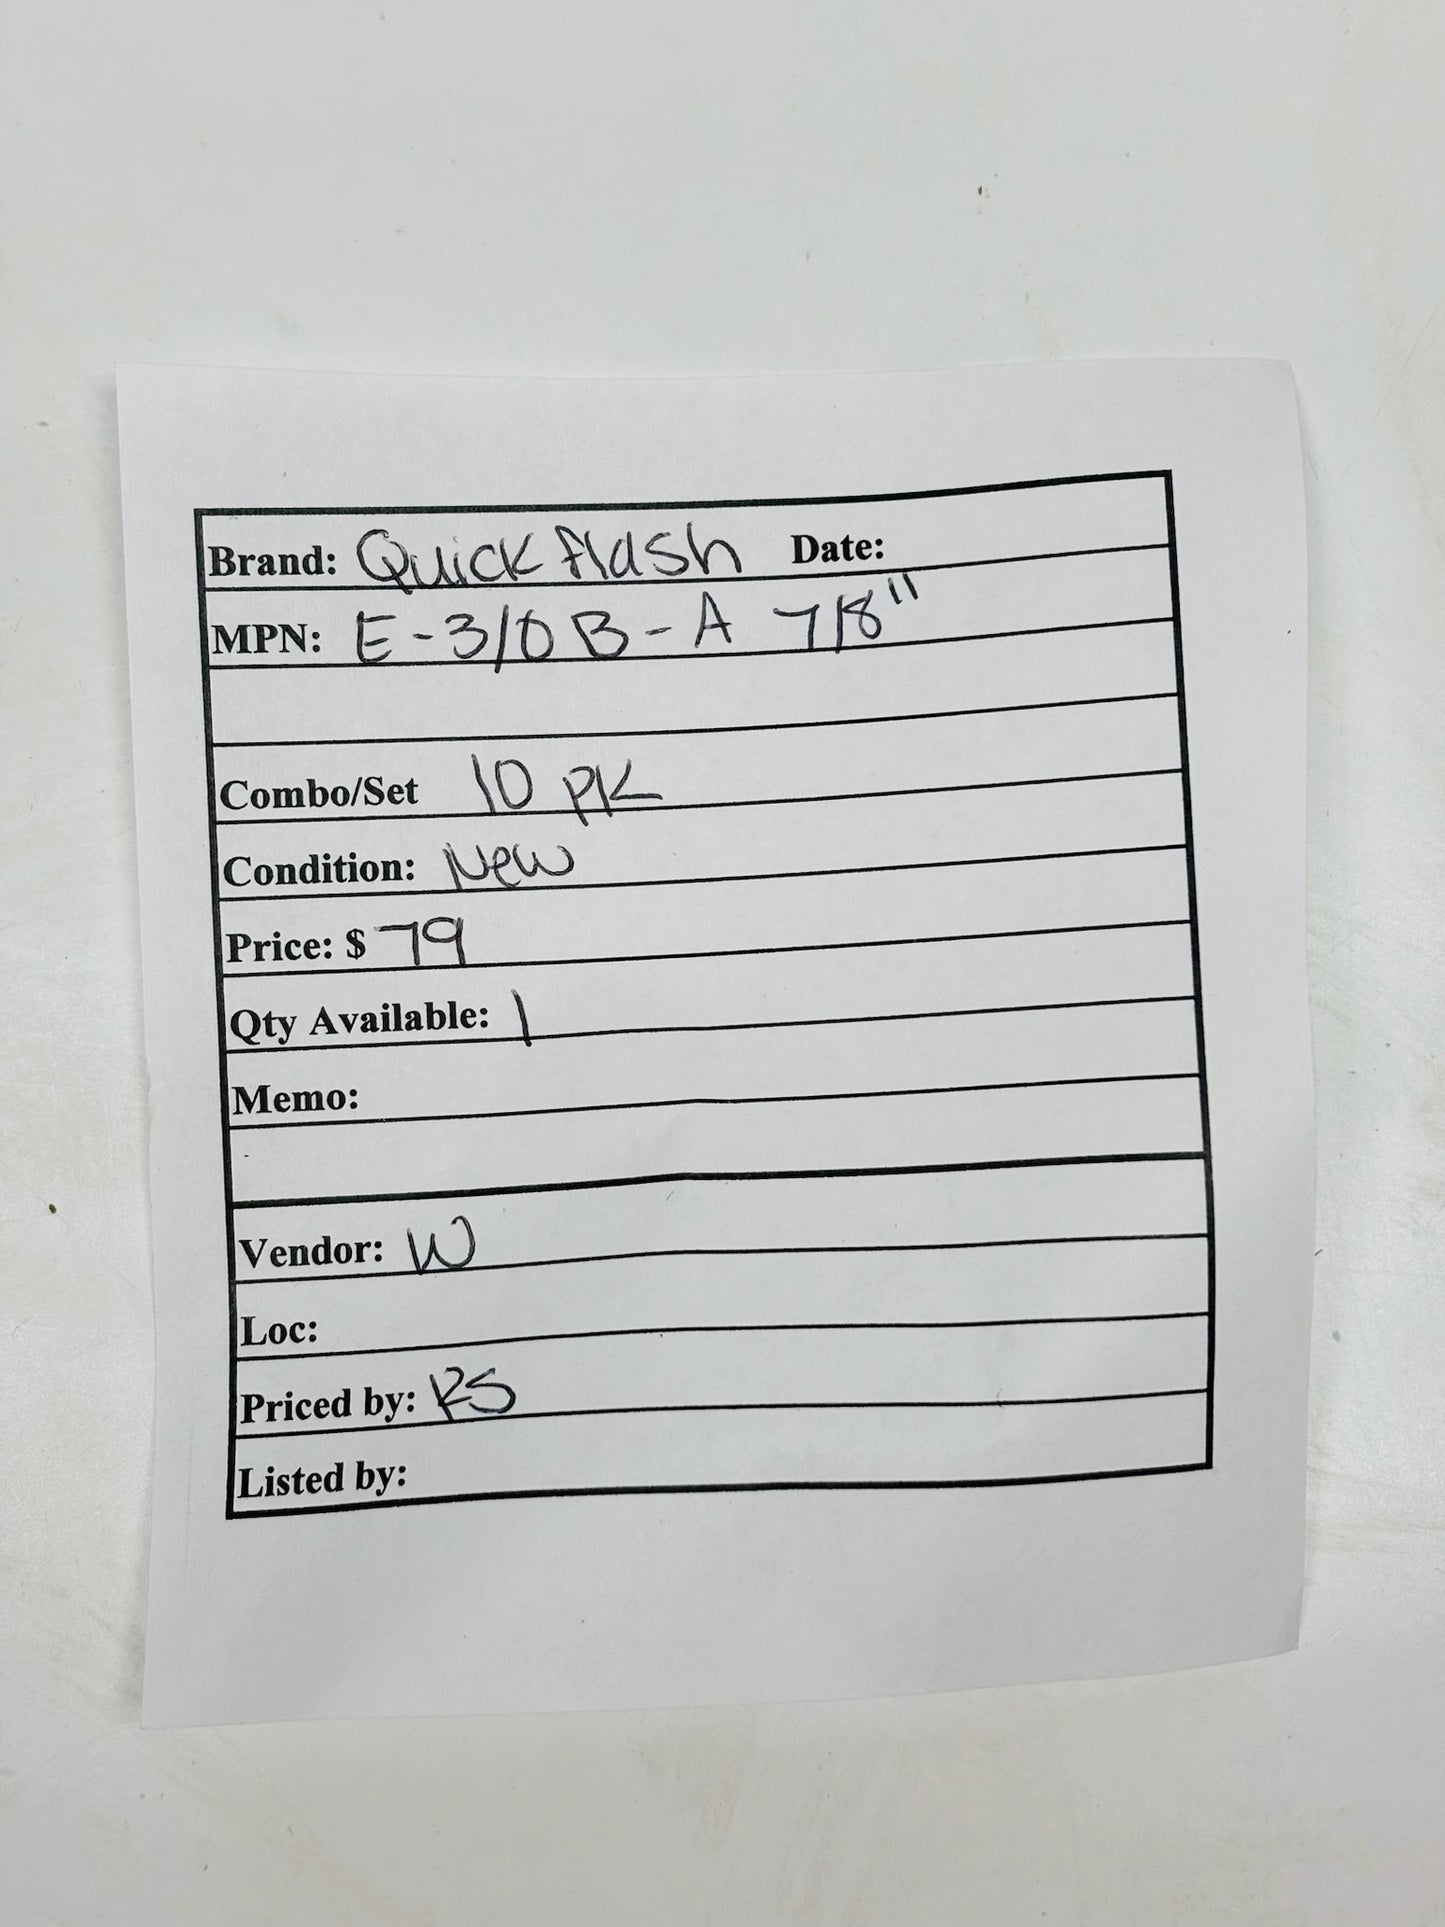 Brand: Quick flash Date:
MPN: E-3/0 B-A 7/8"
Combo/Set 10 PK
Condition: New
Price: $ 79
Qty Available: 1
Memo:
Vendor: W
Loc:
Priced by: RS
Listed by: